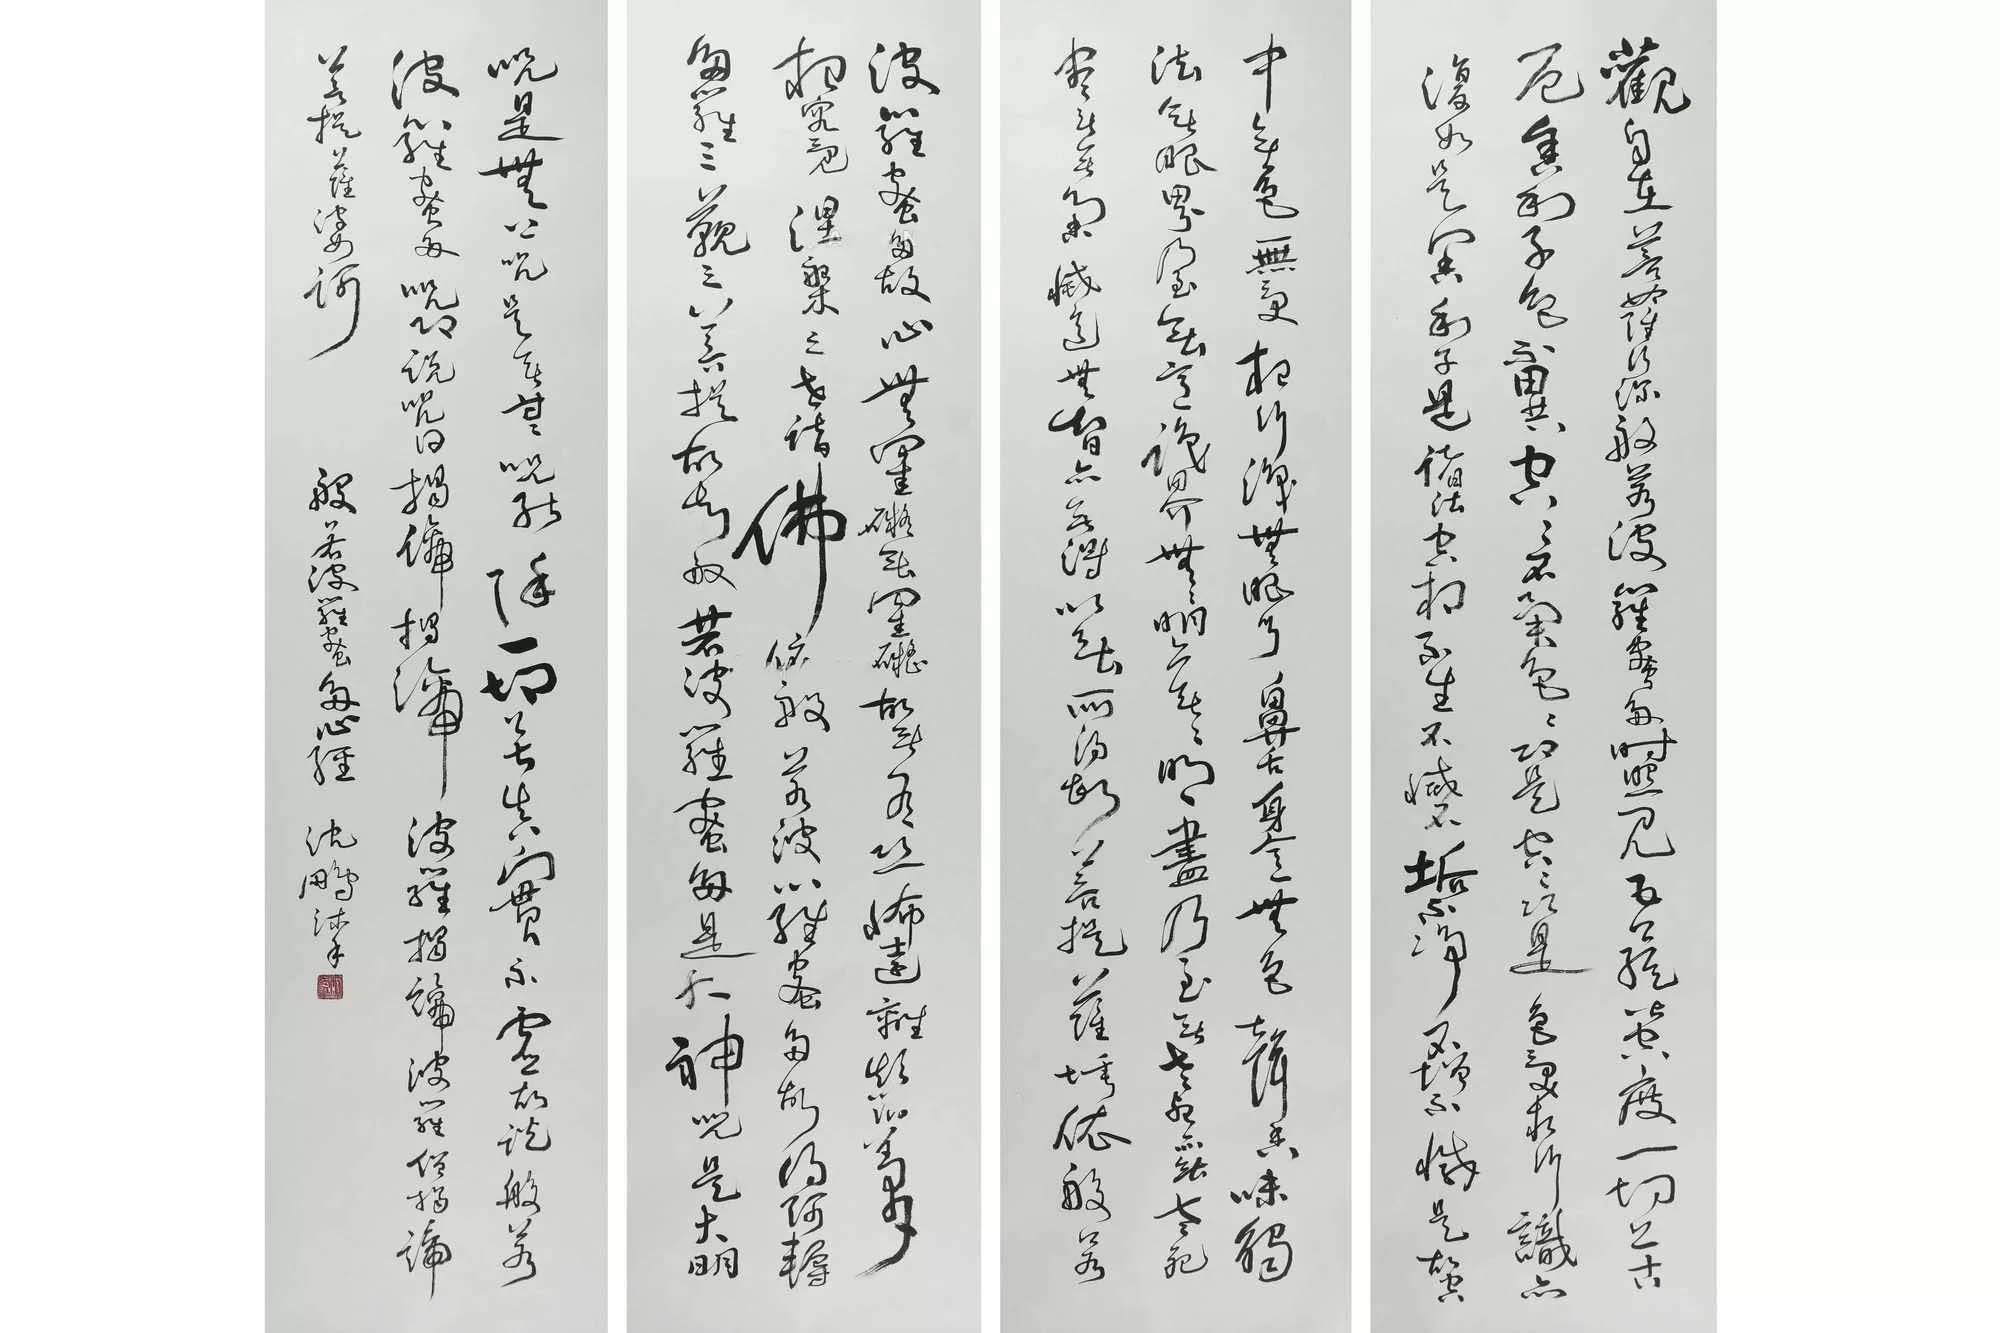 觀自在菩薩行深般若波羅蜜多時照見五蘊皆空度一切苦
厄舍利子色不異空々不異色々即是空々即是色受想行識亦
復如是舍利子是諸法空相不生不滅不垢不淨不增不減是故空
中無色無受想行識無眼耳鼻舌身意無色聲香味觸
法無眼界乃至無意識界無々明亦無々明盡乃至無老死亦無老死
盡無苦集滅道無智亦無得以無所得故菩提薩埵依般若
波羅蜜多故心無罣礙無罣礙故無有恐怖遠離顛倒夢
想究竟涅槃三世諸佛依般若波羅蜜多故得阿耨
多羅三藐三菩提故知般若波羅蜜多是大神咒是大明
咒是無上咒是無等等咒能除一切苦真實不虛故說般若
波羅蜜多咒即說咒曰揭諦揭諦波羅揭諦波羅僧揭諦
菩提薩婆訶 般若波羅蜜多心經 沈鵬沐手